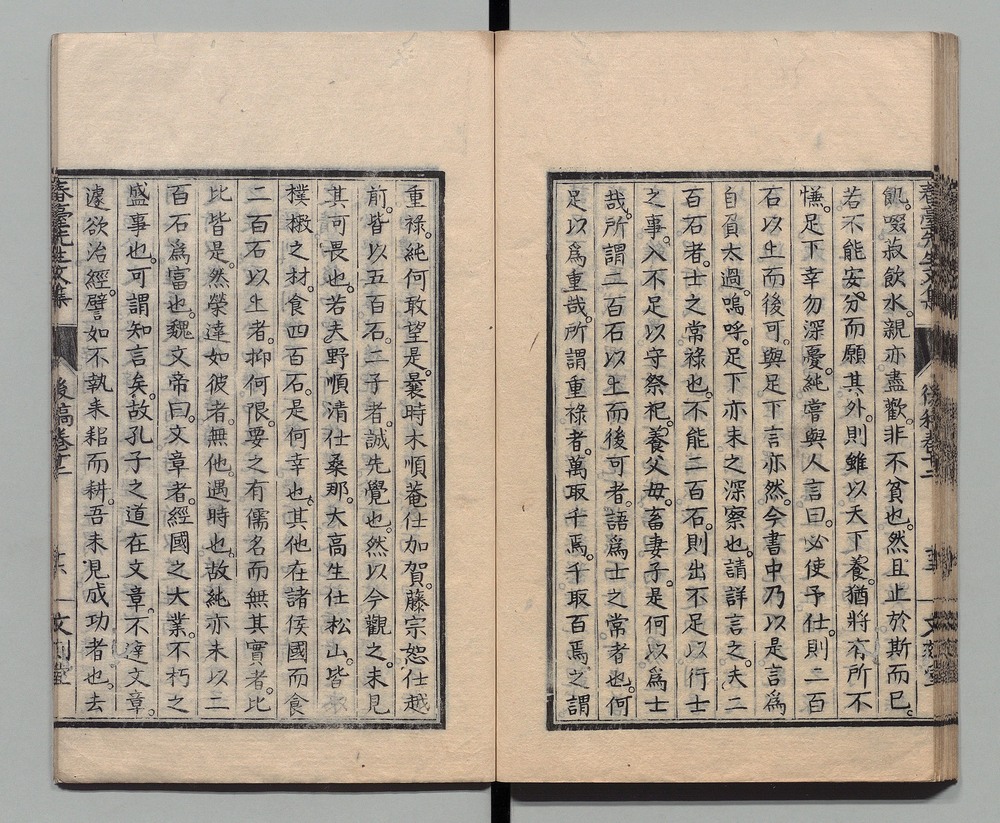 飢。啜菽飲水。親亦盡歡。非不貧也。然且止於斯而已。
若不能安分而願其外。則雖以天下養。猶將有所不
慊。足下幸勿深憂。純嘗與人言曰。必使予仕。則二百
石以上而後可。與足下言亦然。今書中乃以是言爲
自負太過。嗚呼。足下亦未之深察也。請詳言之。夫二
百石者。士之常祿也。不能二百石。則出不足以行士
之事。入不足以守祭祀。養父母。畜妻子。是何以爲士
哉。所謂二百石以上而後可者。語爲士之常者也。何
足以爲重哉。所謂重祿者。萬取千焉。千取百焉。之謂
重祿。純何敢望是。曩時木順菴仕加賀。藤宗恕仕越
前。皆以五百石。二子者。誠先覺也。然以今觀之。未見
其可畏也。若夫野順清仕桑那。大高生仕松山。皆
樸樕之材。食四百石。是何幸也。其他在諸侯國而食
二百石以上者。抑何限。要之有儒名而無其實者。比
比皆是。然榮達如彼者。無他。遇時也。故純亦未以二
百石爲富也。魏文帝曰。文章者。經國之大業。不朽之
盛事也。可謂知言矣。故孔子之道在文章。不達文章。
遽欲治經。譬如不執耒耜而耕。吾未見成功者也。去
春臺先生文集
後稿卷十二